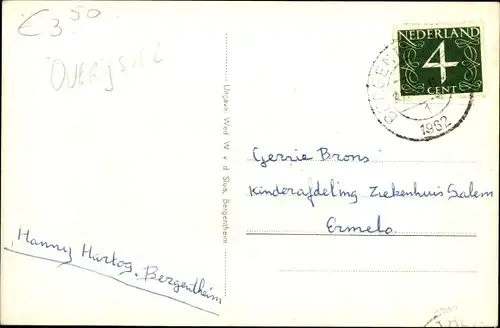 € 3.50
OVERIJSSEL
NEDERLAND
4
CENT
1962
Uitgave: Wed W v d Sluis, Bergentheim
Gerrie Brons
Kinderafdeling Ziekenhuis Salem
Ermelo.
Hanny Hartog. Bergentheim